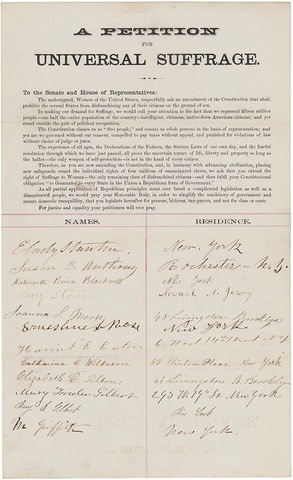 A PETITION
FOR
UNIVERSAL SUFFRAGE.
To the Senate and House of Representatives:
The undersigned, Women of the United States, respectfully ask an amendment of the Constitution that shall
prohibit the several States from disfranchising any of their citizens on the ground of sex.
In making our demand for Suffrage, we would call your attention to the fact that we represent fifteen million
people—one half the entire population of the country—intelligent, virtuous, native-born American citizens; and yet
stand outside the pale of political recognition.
The Constitution classes us as "free people," and counts us whole persons in the basis of representation; and
yet are we governed without our consent, compelled to pay taxes without appeal, and punished for violations of law
without choice of judge or juror.
The experience of all ages, the Declarations of the Fathers, the Statute Laws of our own day, and the fearful
revolution through which we have just passed, all prove the uncertain tenure of life, liberty and property so long as
the ballot—the only weapon of self-protection—is not in the hand of every citizen.
Therefore, as you are now amending the Constitution, and, in harmony with advancing civilization, placing
new safeguards round the individual rights of four millions of emancipated slaves, we ask that you extend the
right of Suffrage to Woman—the only remaining class of disfranchised citizens—and thus fulfil your Constitutional
obligation "to Guarantee to every State in the Union a Republican form of Government."
As all partial application of Republican principles must ever breed a complicated legislation as well as a
discontented people, we would pray your Honorable Body, in order to simplify the machinery of government and
ensure domestic tranquillity, that you legislate hereafter for persons, citizens, tax-payers, and not for class or caste.
For justice and equality your petitioners will ever pray.
NAMES. RESIDENCE.
E Cady Stanton New York
Susan B. Anthony Rochester - N.Y.
Antoinette Brown Blackwell New York
Lucy Stone Newark N. Jersey
Joanna S. Morse 48 Livingston Brooklyn
Ernestine L Rose New York
Harriet E. Eaton 6 West 14th Street N.Y.
Catharine C Wilkeson 83 Clinton Place New York
Elizabeth R. Tilton 48 Livingston St Brooklyn
Mary Fowler Gilbert 293 W. 19th St New York
New York
M. Griffith New York.